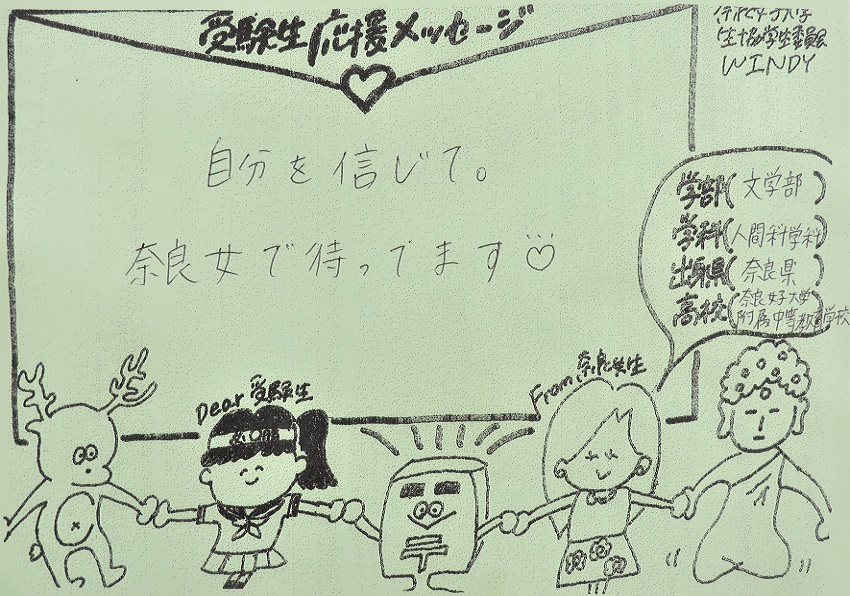 受験生応援メッセージ
生協学生委員会
WINDY
自分を信じて。
奈良女で待ってます♡
学部(文学部)
学科(人間科学科)
出身県(奈良県)
高校(奈良女子大学
附属中等教育学校)
Dear 受験生
From 奈良女生
必〇勝
〒